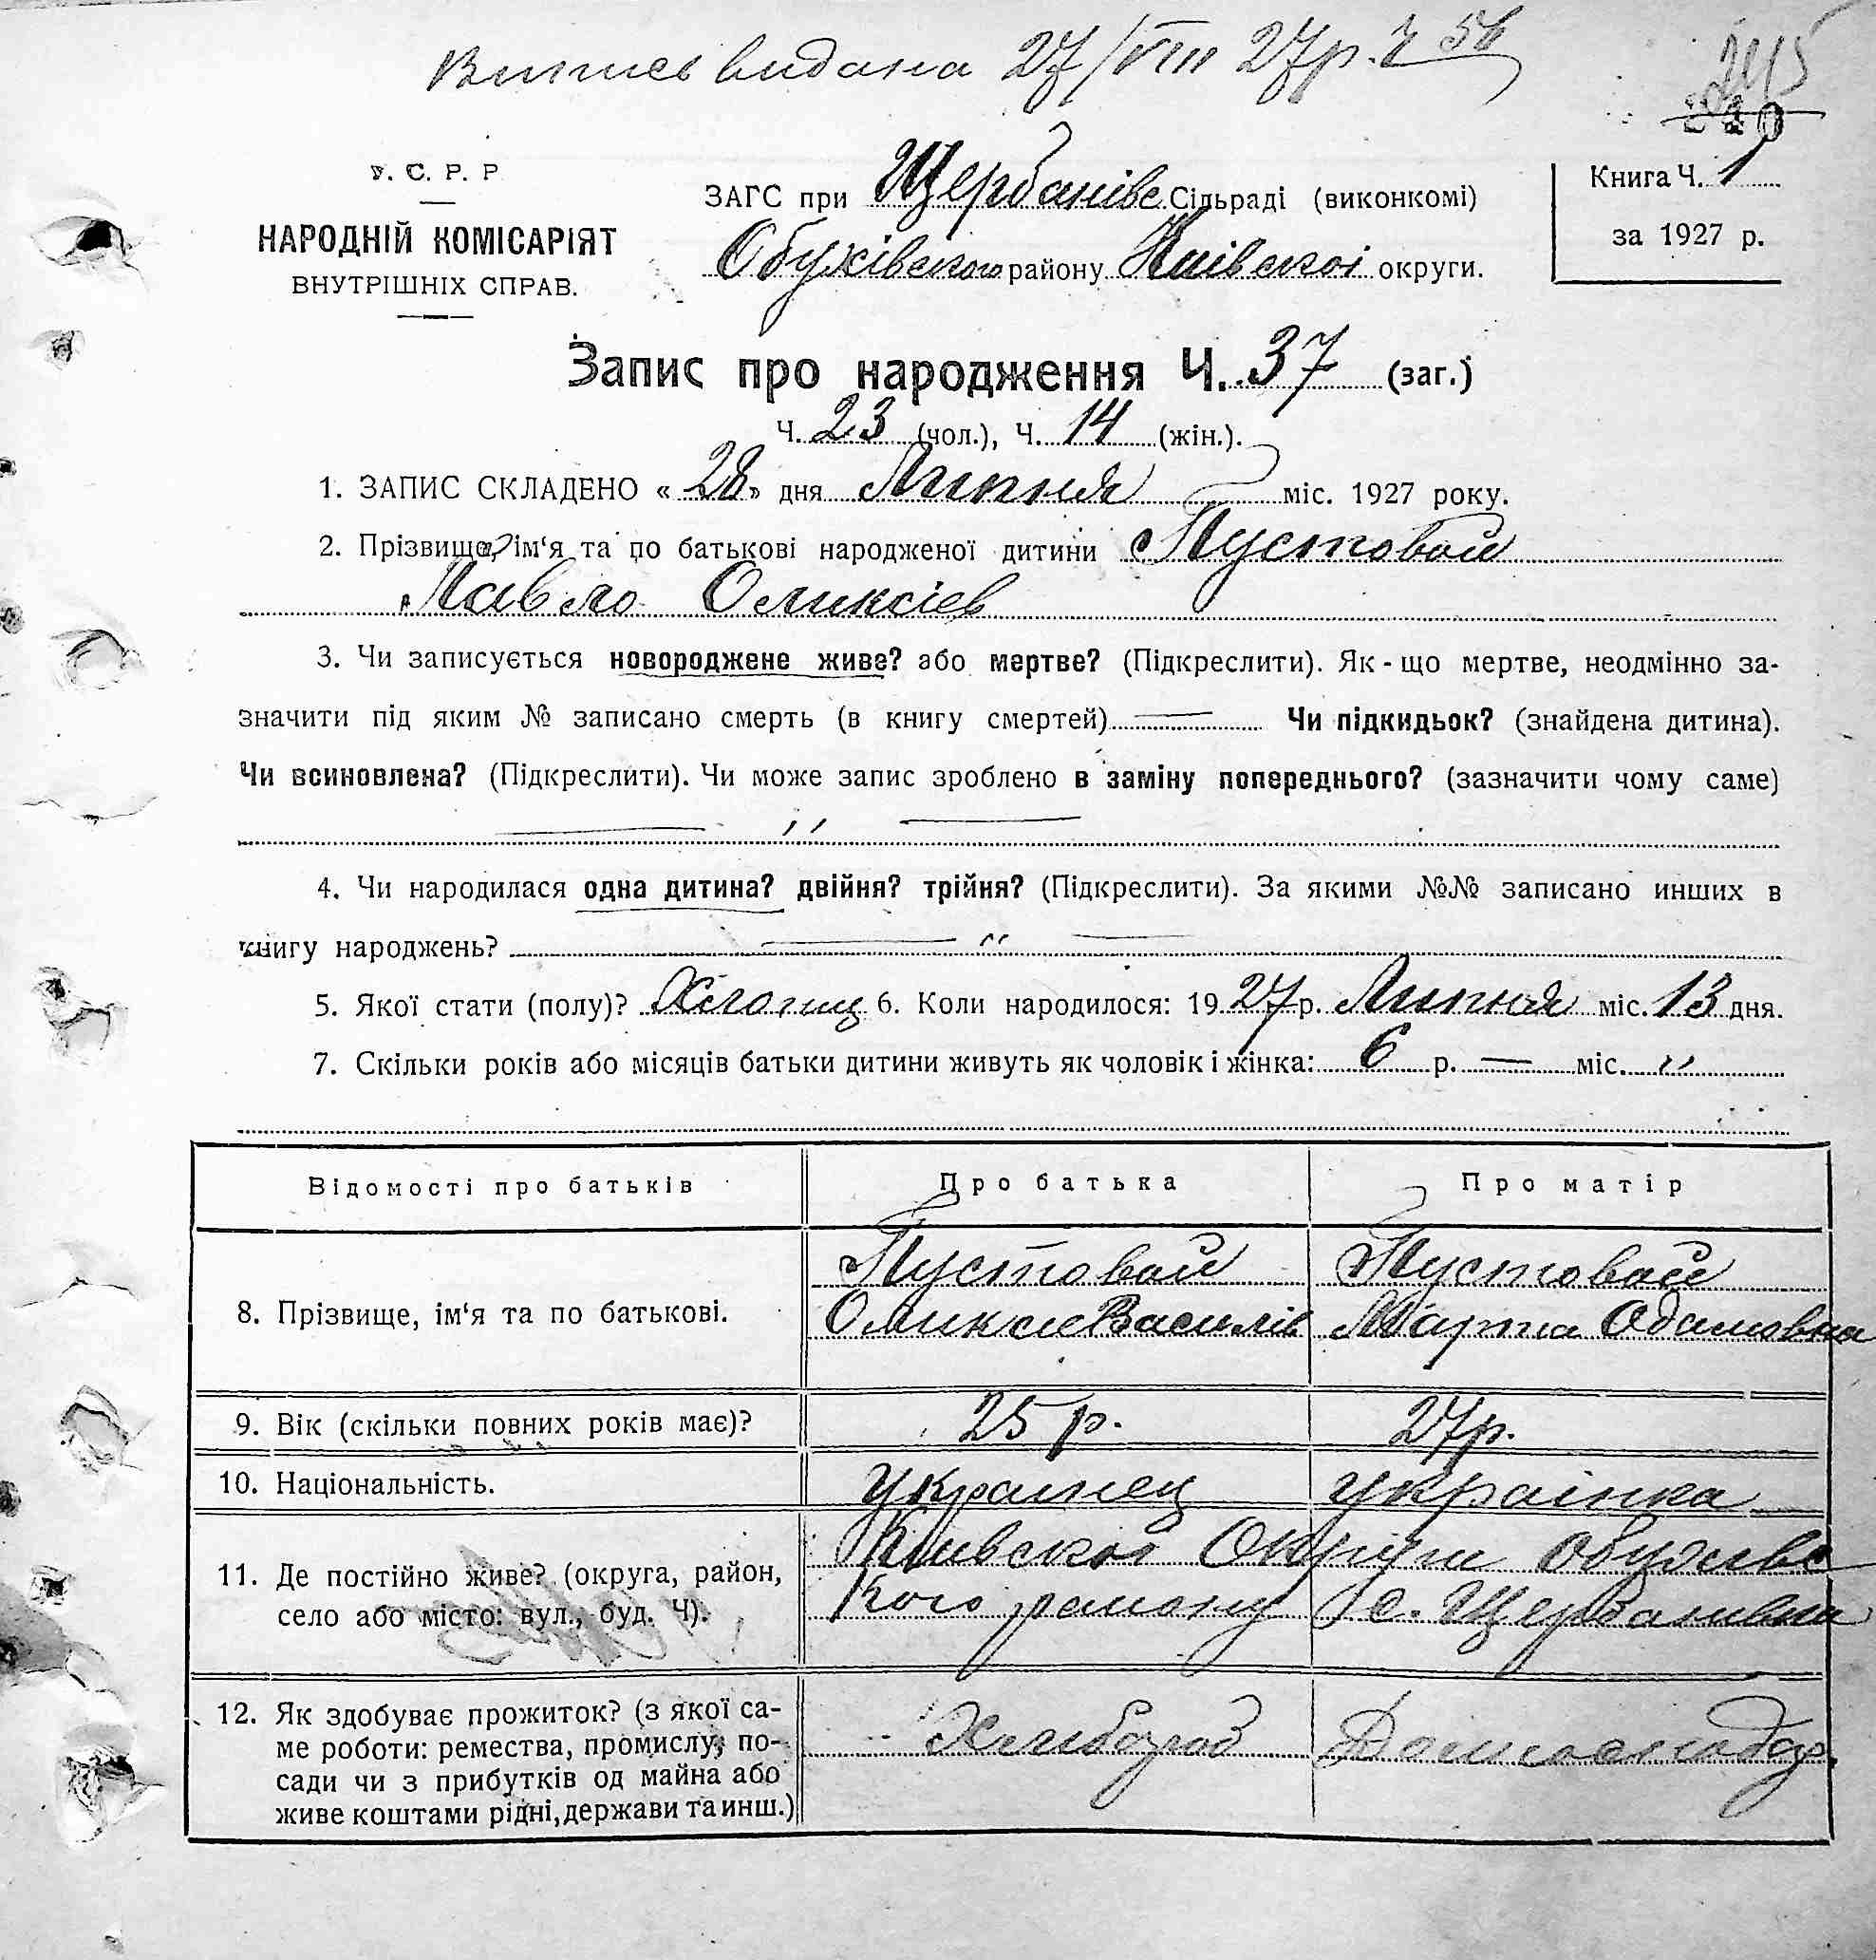 Випись видана 27/VIII 27р. Ч 56
245
220
У. С. Р. Р
НАРОДНІЙ КОМІСАРІЯТ
ВНУТРІШНІХ СПРАВ.
ЗАГС при Щербанівс. Сільраді (виконкомі)
Обухівського району Київської округи.
Книга Ч. 1
за 1927 р.
Запис про народження Ч. 37 (заг.)
Ч. 23 (чол.), Ч. 14 (жін.).
1. ЗАПИС СКЛАДЕНО « 28 » дня Липня міс. 1927 року.
2. Прізвище, ім‘я та по батькові народженої дитини Пустовой
Павло Оликсіев
3. Чи записується новороджене живе? або мертве? (Підкреслити). Як-що мертве, неодмінно за-
значити під яким № записано смерть (в книгу смертей) — Чи підкидьок? (знайдена дитина).
Чи всиновлена? (Підкреслити). Чи може запис зроблено в заміну попереднього? (зазначити чому саме)
— ,, —
4. Чи народилася одна дитина? двійня? трійня? (Підкреслити). За якими №№ записано инших в
книгу народжень? — ,, —
5. Якої стати (полу)? Хлопиц 6. Коли народилося: 1927 р. Липня міс. 13 дня.
7. Скільки років або місяців батьки дитини живуть як чоловік і жінка: 6 р. — міс. ,,
Відомості про батьків Про батька Про матір
8. Прізвище, ім‘я та по батькові. Пустовой Пустовой
Оликсе Василів Марта Одамовна
9. Вік (скільки повних років має)? 25 р. 27 р.
10. Національність. Украинец украінка
11. Де постійно живе? (округа, район, Киівскоі Округи Обухівс
село або місто: вул., буд. Ч). кого району с. Щербанивки
12. Як здобуває прожиток? (з якої са- Хлибороб Домогосподар.
ме роботи: ремества, промислу, по-
сади чи з прибутків од майна або
живе коштами рідні, держави та инш.)